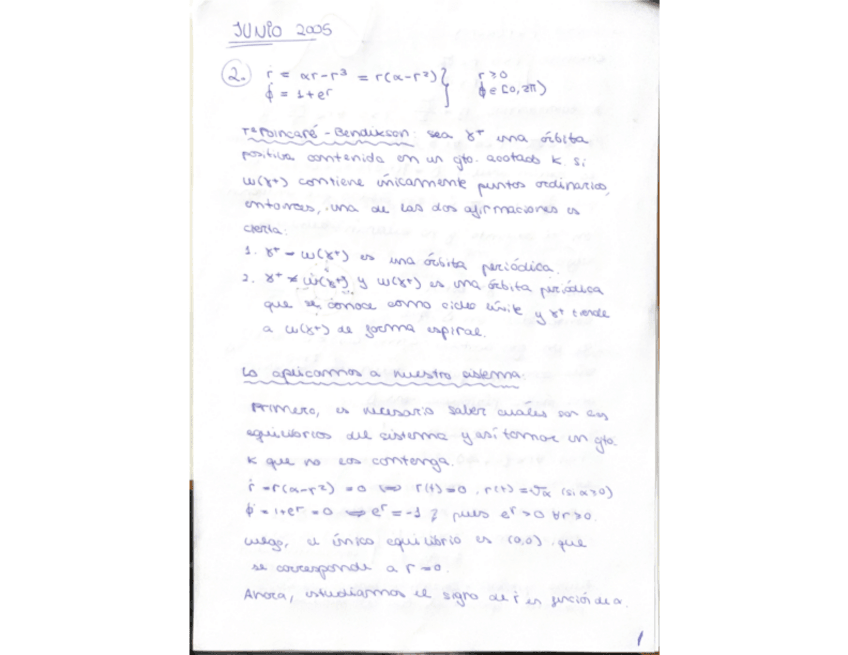 JUNIO 2005
2. ṙ = αr-r³ = r(α-r²) } r≥0
φ̇ = 1+eʳ } φ∈[0,2π)
Tª Poincaré-Bendikson: sea γ⁺ una órbita
positiva contenida en un gto. acotado K. Si
ω(γ⁺) contiene únicamente puntos ordinarios,
entonces, una de las dos afirmaciones es
cierta:
1. γ⁺ = ω(γ⁺) es una órbita periódica.
2. γ⁺ ≠ ω(γ⁺) y ω(γ⁺) es una órbita periódica
que se conoce como ciclo límite y γ⁺ tiende
a ω(γ⁺) de forma espiral.
Lo aplicamos a nuestro sistema.
Primero, es necesario saber cuáles son los
equilibrios del sistema y así tomar un gto.
K que no los contenga.
ṙ = r(α-r²) = 0 ⟺ r(t)=0, r(t)=√α (si α>0)
φ̇ = 1+eʳ = 0 ⟺ eʳ=-1 pues eʳ>0 ∀r>0.
Luego, el único equilibrio es (0,0) que
se corresponde a r=0.
Ahora, estudiamos el signo de ṙ en función de α.
1